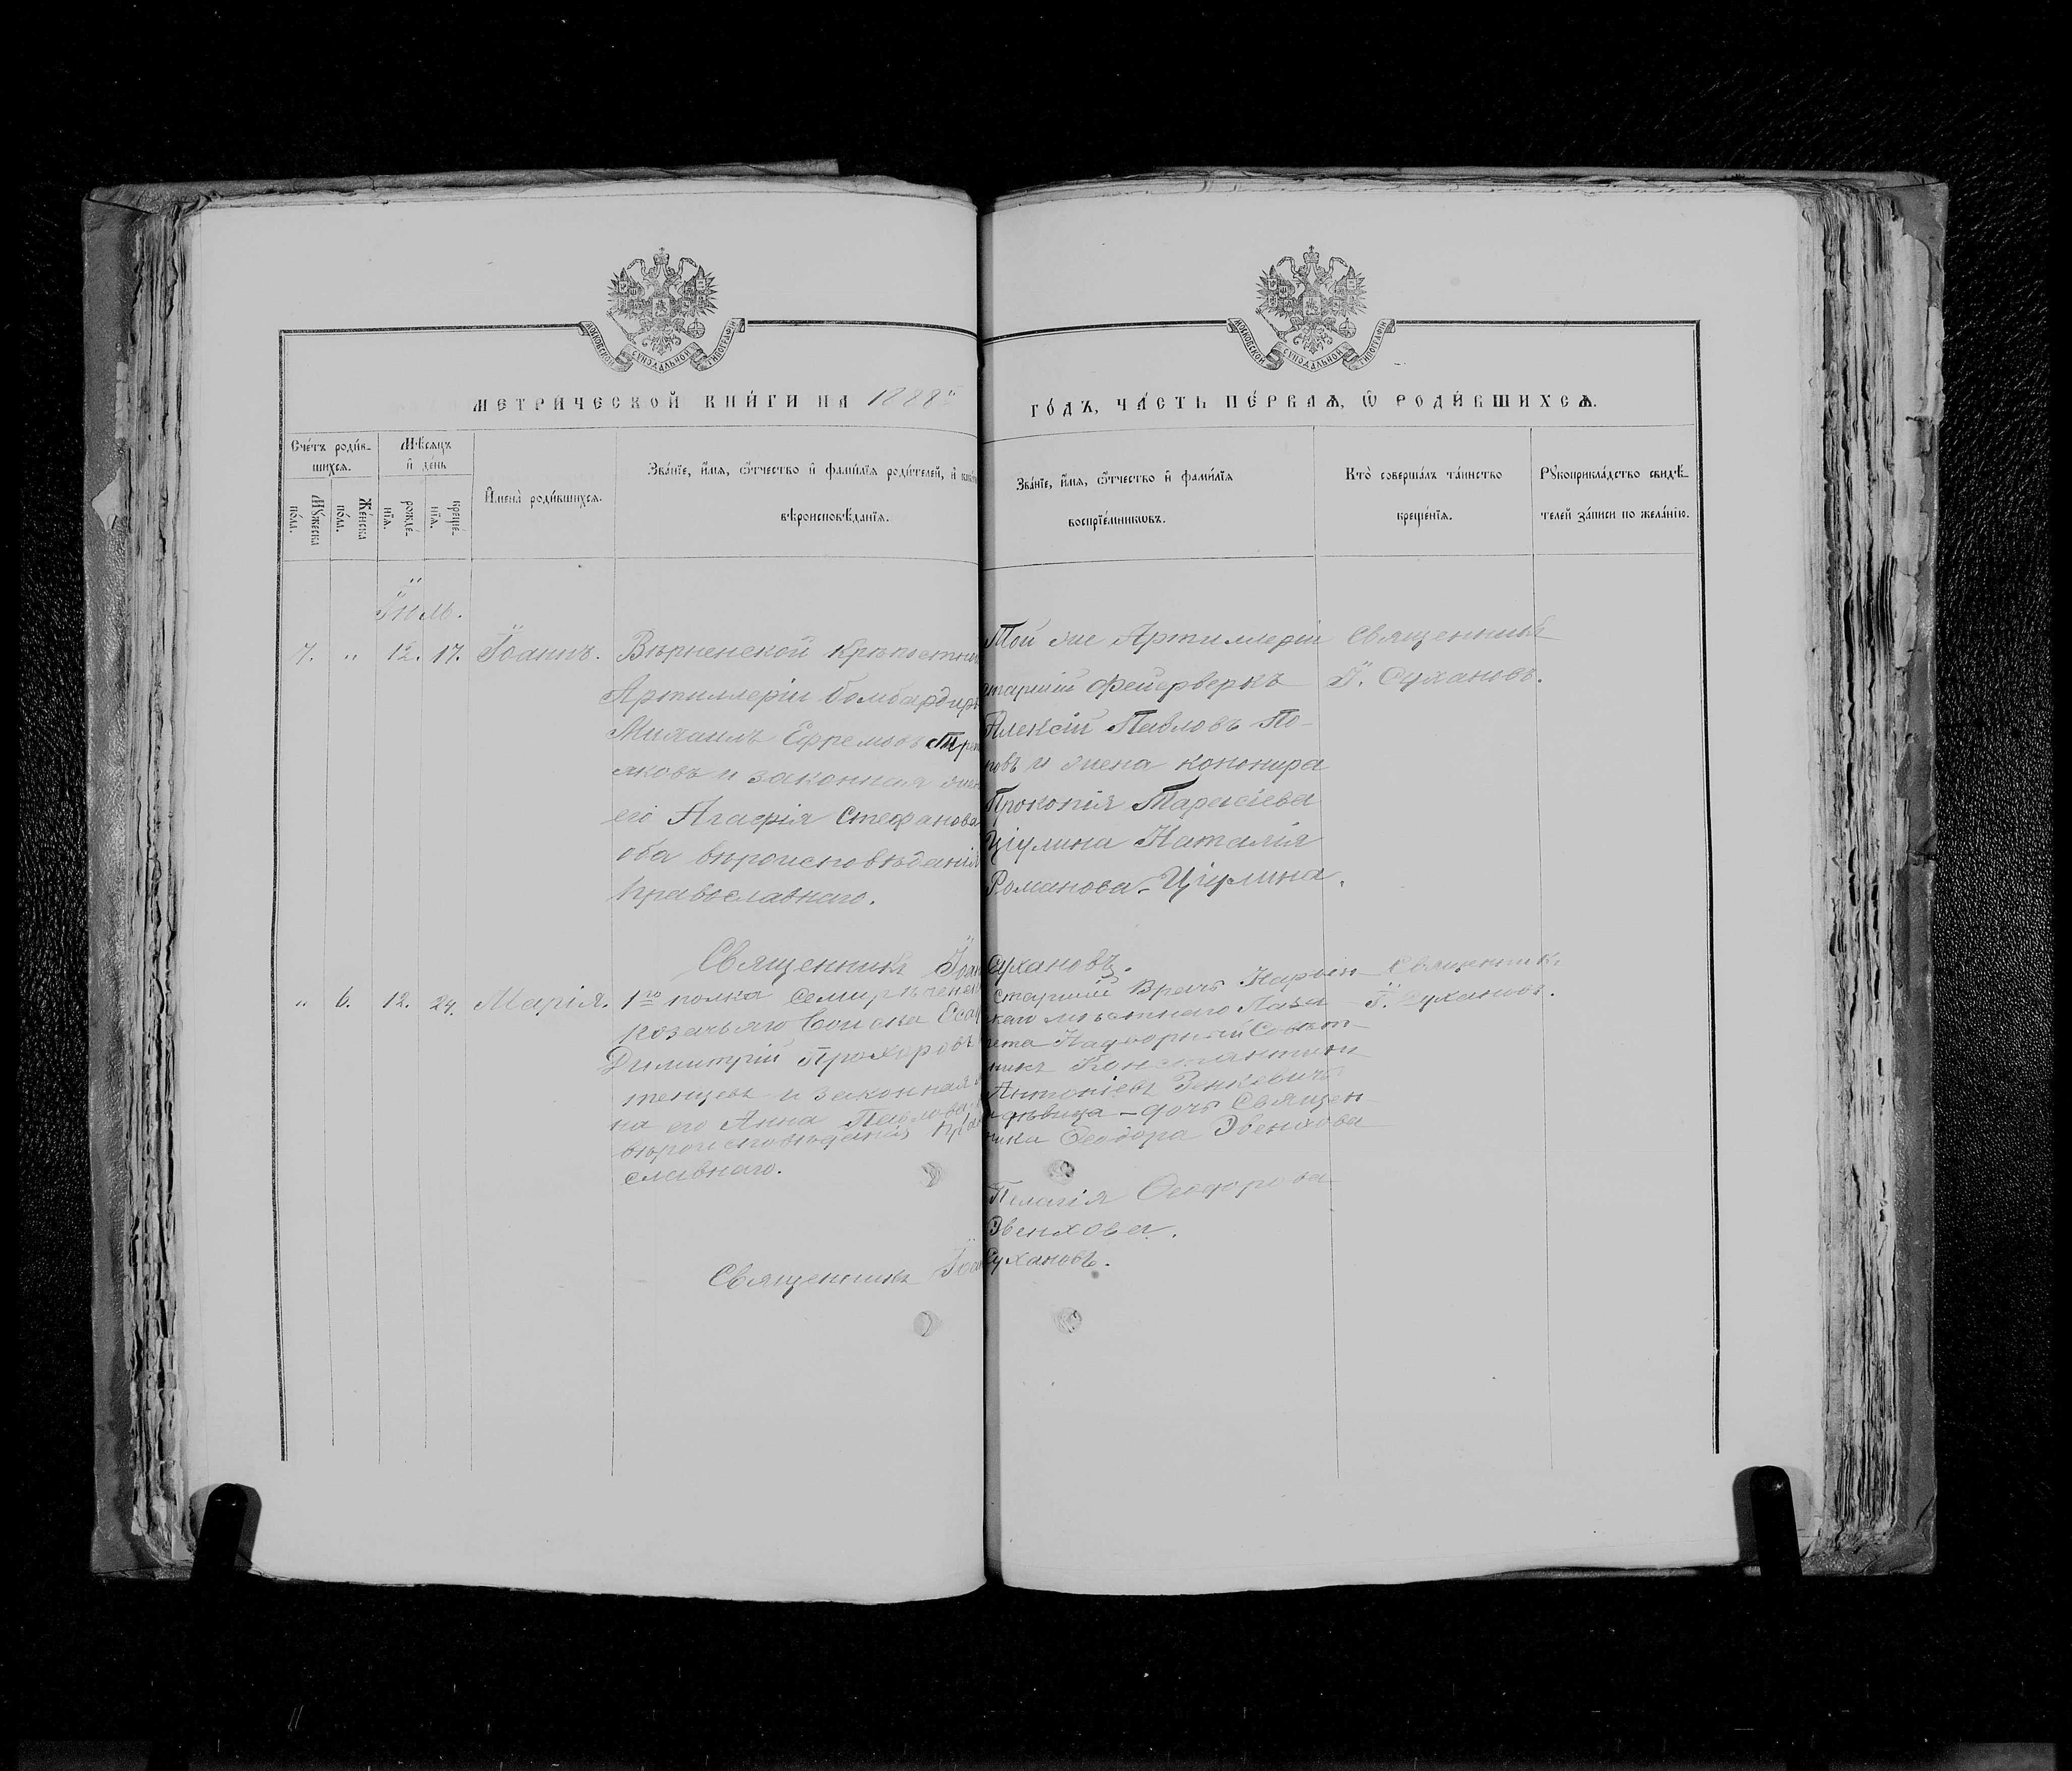 МОСКОВСКОЙ СѴНОДАЛЬНОЙ ТИПОГРАФІИ
МОСКОВСКОЙ СѴНОДАЛЬНОЙ ТИПОГРАФІИ
МЕТРИ́ЧЕСКОЙ КНИ́ГИ НА 1888й
ГО́ДЪ, ЧА́СТЬ ПЕ́РВАѦ, Ѡ РОДИ́ВШИХСѦ.
Сче́тъ роди́в-
шихсѧ.
Мꙋ́жеска
по́ла.
Же́нска
по́ла.
Мѣ́сѧцъ
и҆ день
рожде́-
нїѧ.
креще́-
нїѧ.
И҆мена̀ роди́вшихсѧ.
Зва́нїе, и҆́мѧ, ѻ҆́тчество и҆ фамилїѧ роди́телей, и҆
вѣроисповѣ́данїѧ.
Зва́нїе, и҆́мѧ, ѻ҆́тчество и҆ фамилїѧ
воспрїе́мникѡвъ.
Кто̀ соверша́лъ та́инство
креще́нїѧ.
Рꙋкоприкла́дство свидѣ́-
телей за́писи по жела́нїю.
Іюль.
7. " 12. 17. Іоаннъ.
Вѣрненской крѣпостн
Артиллеріи бомбардиръ
Михаилъ Ефремовъ Трет
яковъ и законная же
его Агафія Стефанова
оба вѣроисповѣданія
православнаго.
Той же Артиллеріи
старшій Фейерверкъ
Алексій Павловъ По-
повъ и жена кононира
Прокопія Тарасіева
Цѣулина Наталія
Романова Цѣулина.
Священникъ
І. Сухановъ.
Священникъ Іоан Сухановъ.
" 6. 12. 24. Марія.
1го полка Семирѣченск
козачьяго Войска Есау
Димитрій Прохоровъ
тенцевъ и законная
на его Анна Павлова
вѣроисповѣданія Пра
славнаго.
Старшій Врачъ Нарын
скаго мѣстнаго Лаза
рета Надворный Совѣт
никъ Константинъ
Антоніевъ Зенкевичъ
и дѣвица – дочь Священ
ника Ѳеодора Звенкова
Пелагія Ѳеодорова
Звенкова.
Священникъ
І. Сухановъ.
Священникъ Іоа Сухановъ.